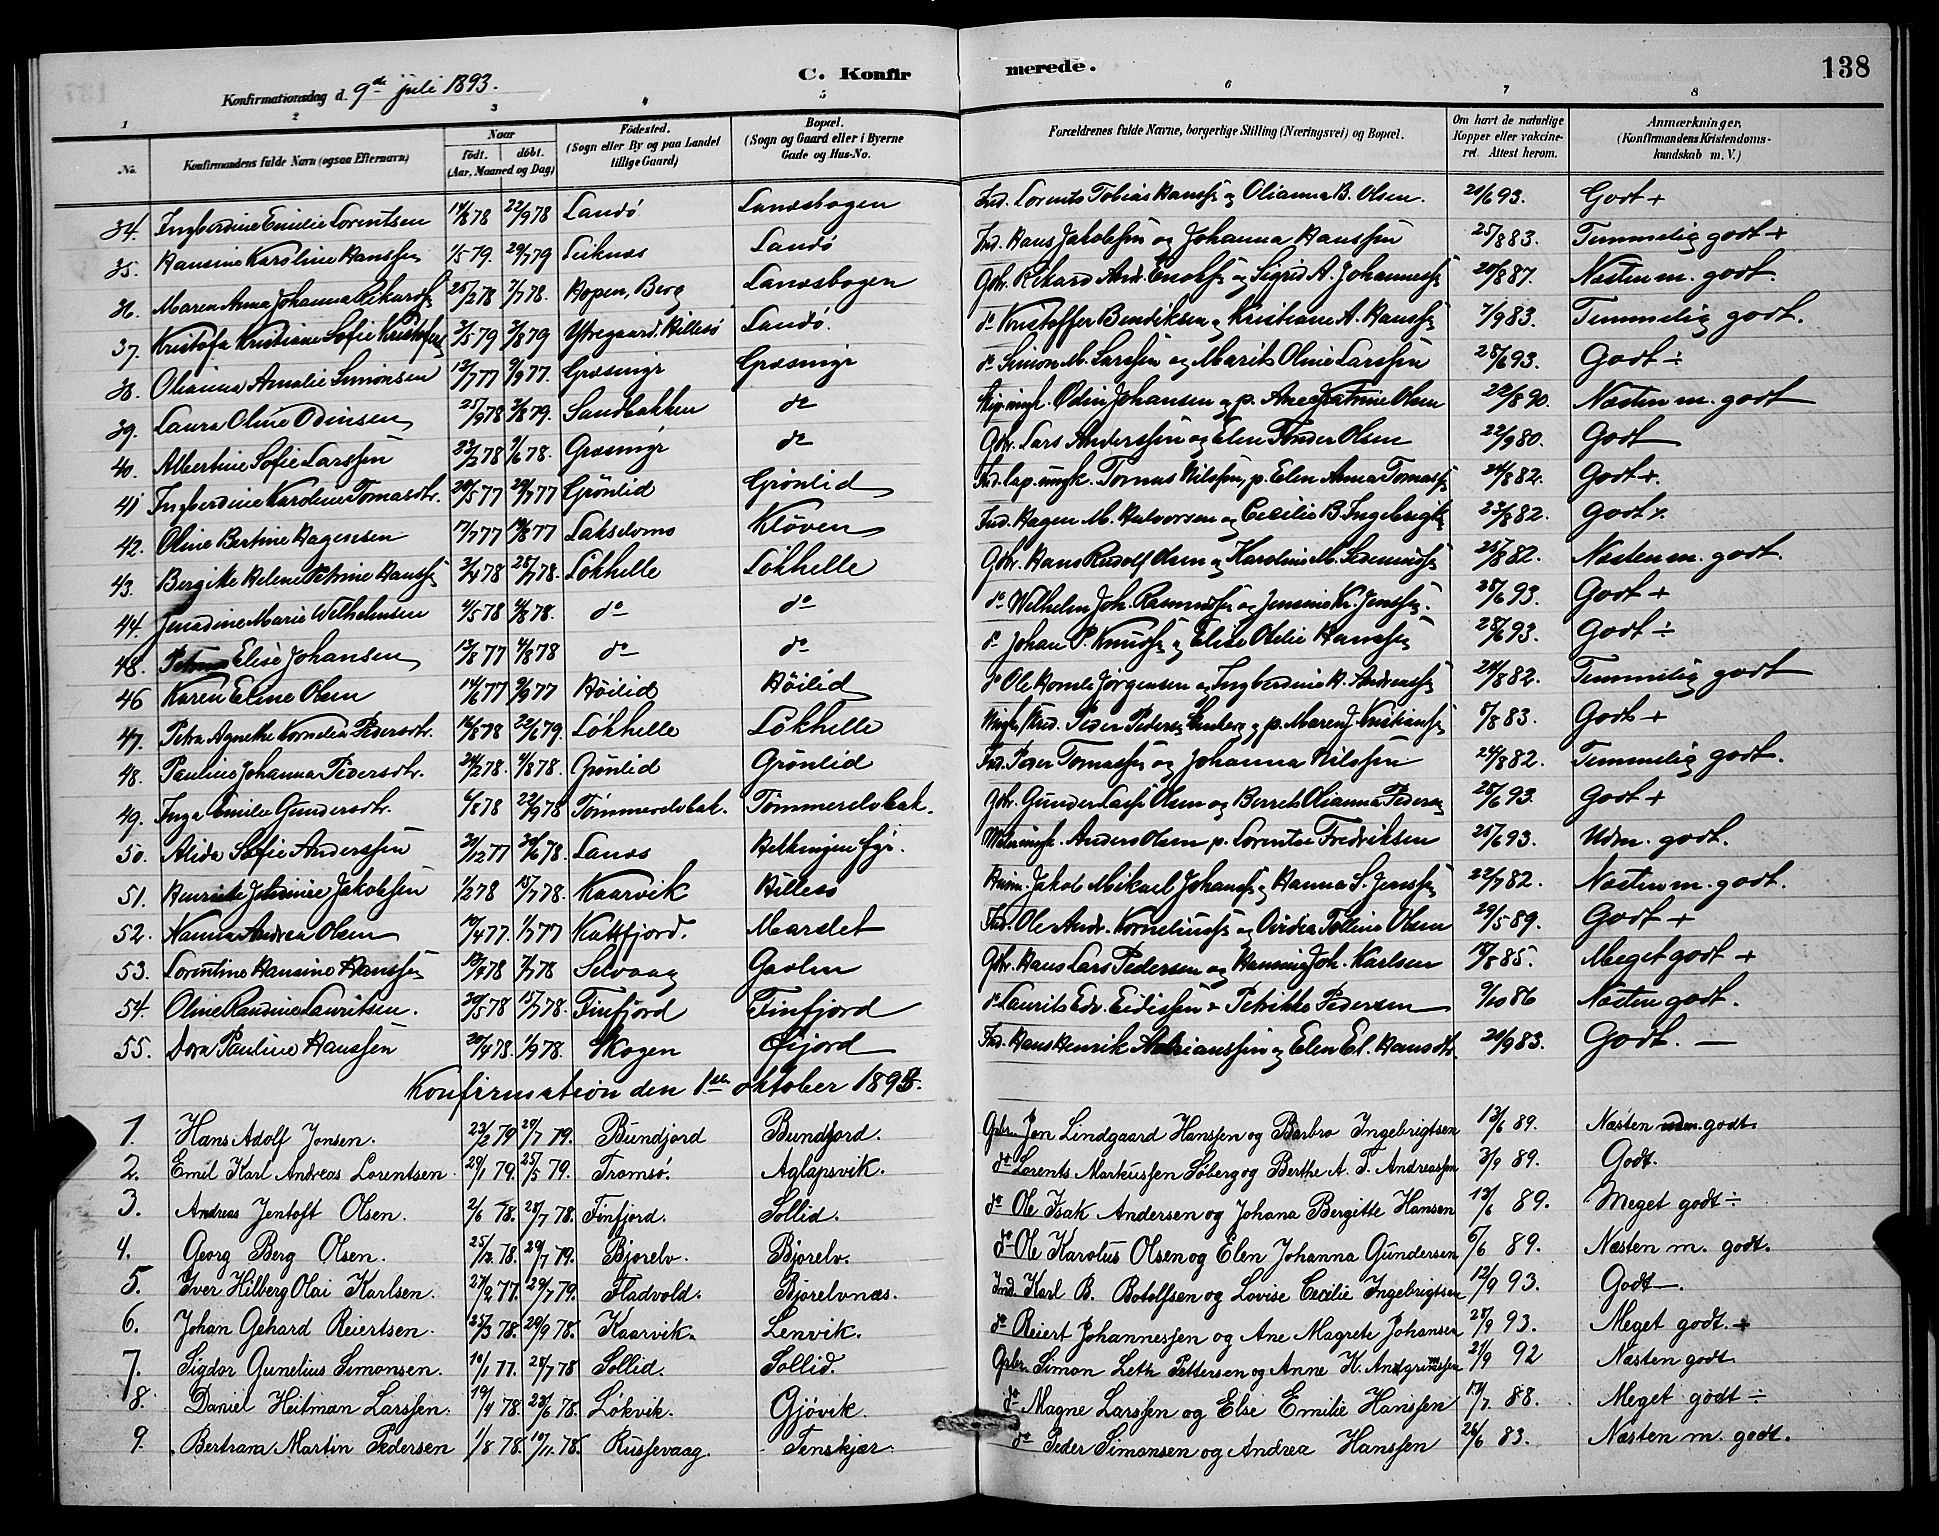 C. Konfirmerede.
138
Konfirmationsdag d. 9de juli 1893.
1 2 3 4 5 6 7 8
No.
Konfirmandens fulde Navn (ogsaa Efternavn)
Naar
født. døbt.
(Aar, Maaned og Dag)
Fødested.
(Sogn eller By og paa Landet
tillige Gaard)
Bopæl.
(Sogn og Gaard eller i Byerne
Gade og Hus-No.
Forældrenes fulde Navne, borgerlige Stilling (Næringsvei) og Bopæl.
Om havt de naturlige
Kopper eller vakcine-
ret. Attest herom.
Anmærkninger.
(Konfirmandens Kristendoms-
kundskab m. V.)
34. Ingberdine Emilie Lorentsen 14/8 78 22/9 78 Sandø Lorents Tobias Hanss. og Olianna B. Olsen. 21/6 93. Godt +
35. Hansine Karoline Hanssen 1/5 79. 29/7 79 Leiknes Sandø Ind. Hans Jakobsen og Johanna Hanssen 25/8 83. Temmelig godt +
36. Maren Anna Johanna 25/2 78 7/7 78. Hopen, Berg Gbr. Rikard Andr. og Sigrid A. Johanness. 20/8 87. Næsten m. godt
37. Kristofa Kristiane Sofie 3/5 79 3/8 79 Ytregaard. Hillesø Sandø. do Kristoffer Bendiksen og Kristiane A. Hanss. 7/9 83. Temmelig godt.
38. Olianna Amalie Simonsen 13/7 77 9/9 77. Græsmyr Græsmyr do Simon M. Larssen og Marit Oline Larssen 28/6 93. Godt ÷
39. Laura Oline Odinsen 25/9 78 3/8 79. Sandbakken do Odin Johansen og p. Ane Katrine Olsen 22/8 90. Næsten m. godt
40. Albertine Sofie Larssen 23/2 78 9/6 78. Græsmyr do Gbr. Lars Anderssen og Elen Olsen 22/9 80. Godt
41 Ingberdine Karoline Tomasdtr. 20/5 77 29/7 77 Grönlid Grönlid Tomas Nilssen, p. Elen Anna Tomass. 24/8 82. Godt +.
42. Oline Bertine Hagensen 17/7 77 19/8 77 Klöven Ind. Hagen M. Halvorsen og Cecilie B. Ingebrigts. 23/8 82. Godt +.
43. Bergitte Helene Petrine Hanss. 3/4 78 28/7 78. Lökhelle Lökhelle Gbr. Hans Rudolf Olsen og Karoline M. 25/8 82. Næsten m. godt.
44. Jensdine Marie Wilhelmsen 4/5 78 4/8 78. do do do Wilhelm Joh. og Jensine Kr. Jenssen. 28/6 93. Godt +
48. Elise Johansen 12/8 77 4/8 78 do do do Johan P. Knuds. og Elise Oline Hanssen 28/6 93. Godt ÷
46 Karen Eline Olsen 14/6 77 9/9 77 Höilid Höilid do Ole Jörgensen og Ingberdine H. Andreass. 24/8 82. Temmelig godt
47. Petra Agnethe Kornelia Pedersdtr. 16/8 78 22/6 79 Lökhelle Lökhelle Peder Pedersen og p. Maren J. Kristians. 8/8 83. Godt +
48. Pauline Johanna Pedersdtr. 24/2 78. 4/8 78. Grönlid Grönlid Ind. Peder Tomassen og Johanna Nilssen 24/8 82. Temmelig godt.
49. Inga Emilie Gundersdtr. 4/8 78 22/9 78 Tömmerelvbak. Tömmerelvbak. Gbr. Gunder Olsen og Berret Olianna Peders. 28/6 93. Godt +
50. Alida Sofie Anderssen 31/12 77 30/6 78. Anders Olsen p. Lorentse Fredriksen 25/6 93. Udm. godt.
51. Jakobsen 1/2 78 15/7 78. Kaarvik Hillesö Jakob Mikael Johans. og Hanna S. Jenss. 22/7 82. Næsten m. godt.
52. Nanna Andrea Olsen 10/4 77. 1/7 77 Kattfjord. Ind. Ole Andr. Korneliuss. og Olsen 29/5 89. Godt +
53. Lorentine Hansine Hanssen 12/4 78 7/7 78 Selvaag Gavlen Gbr. Hans Lars Pedersen og Hansine Joh. Karlsen 17/8 85. Meget godt +
54. Oline Randine Lauritsen. 20/5 78 15/7 78. Finfjord Finfjord do Laurits Edv. og Petrikke Pedersen 9/10 86 Næsten godt.
55. Dora Pauline Hanssen 20/4 78. 1/9 78. Skogen Öijord Ind. Hans Henrik Adrianssen og Elen El. Hansdtr. 21/9 83. Godt. —
Konfirmation den 1ste oktober 1893.
1. Hans Adolf Jonsen. 23/2 79 20/7 79. Bundjord Bundjord. Gbr. Jon Lindgaard Hanssen og Barbro Ingebrigtsen 13/6 89. Næsten udm. godt
2. Emil Karl Andreas Lorentsen. 29/1 79. 25/5 79. Tromsö. Aglapsvik. do Lorents Markussen Söberg og Berthe A. T. Andreassen 3/9 89. Godt.
3. Andreas Jentoft Olsen. 2/6 78. 28/7 78. Finfjord. Sollid. do Ole Isak Andersen og Johana Bergitte Hansen 13/6 89. Meget godt ÷
4. Georg Berg Olsen. 25/12 78. 20/7 79. Bjorelv. Bjorelv. do Ole Karolus Olsen og Elen Johanna Gundersen 6/6 89. Næsten m. godt.
5. Iver Hilberg Olai Karlsen. 27/9 77. 20/7 79. Fladvold. Bjorelvnæs. Ind. Karl B. Botolfsen og Lovise Cecilie Ingebrigtsen 12/9 93. Godt —.
6. Johan Gehard Reiertsen. 25/3 78. 29/9 78. Kaarvik. Lenvik. do Reiert Johannessen og Ane Magrete Johansen 28/9 93. Meget godt. +
7. Sigdor Gunelius Simonsen. 10/1 77. 28/7 78 Sollid. Sollid. Gbr. Simon Leth Pettersen og Anne K. Andgrimssen 21/9 92 Næsten godt
8. Daniel Heitman Larssen. 19/4 78. 23/6 78. Lökvik. Gjövik. do Magne Larssen og Else Emilie Hanssen 17/7 88. Meget godt ÷
9. Bertram Martin Pedersen 1/8 78. 10/11 78. Russevaag. Tenskjær. do Peder Simonsen og Andrea Hanssen 26/6 83. Næsten m. godt.